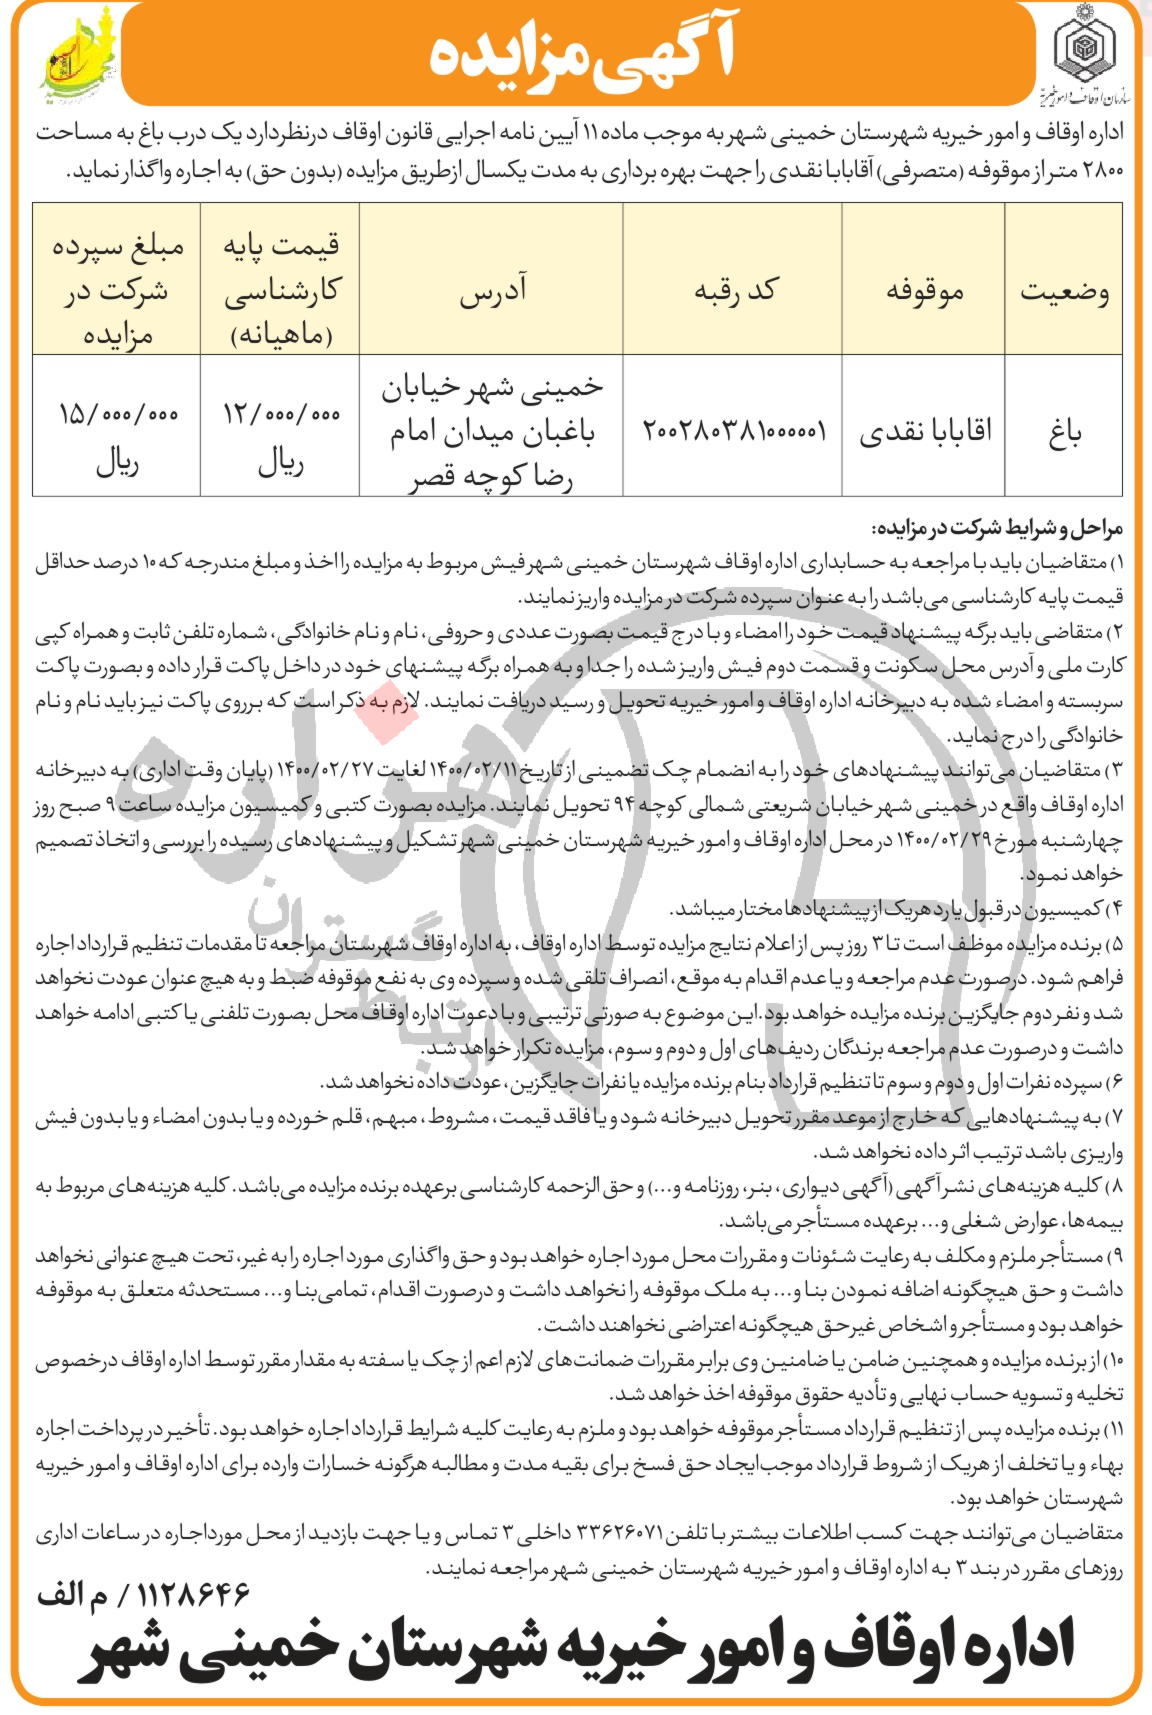 آگهی مزایده
سازمان اوقاف و امور خیریه
اداره اوقاف و امور خیریه شهرستان خمینی شهر به موجب ماده ۱۱ آیین نامه اجرایی قانون اوقاف درنظردارد یک درب باغ به مساحت
۲۸۰۰ متر از موقوفه (متصرفی) آقابابا نقدی را جهت بهره برداری به مدت یکسال ازطریق مزایده (بدون حق) به اجاره واگذار نماید.
وضعیت
موقوفه
کد رقبه
آدرس
قیمت پایه
کارشناسی
(ماهیانه)
مبلغ سپرده
شرکت در
مزایده
باغ
اقابابا نقدی
۲۰۰۲۸۰۳۸۱۰۰۰۰۰۱
خمینی شهر خیابان
باغبان میدان امام
رضا کوچه قصر
۱۲/۰۰۰/۰۰۰
ریال
۱۵/۰۰۰/۰۰۰
ریال
مراحل و شرایط شرکت در مزایده:
۱) متقاضیان باید با مراجعه به حسابداری اداره اوقاف شهرستان خمینی شهر فیش مربوط به مزایده را اخذ و مبلغ مندرجه که ۱۰ درصد حداقل
قیمت پایه کارشناسی می‌باشد را به عنوان سپرده شرکت در مزایده واریز نمایند.
۲) متقاضی باید برگه پیشنهاد قیمت خود را امضاء و با درج قیمت بصورت عددی و حروفی، نام و نام خانوادگی، شماره تلفن ثابت و همراه کپی
کارت ملی و آدرس محل سکونت و قسمت دوم فیش واریز شده را جدا و به همراه برگه پیشنهای خود در داخل پاکت قرار داده و بصورت پاکت
سربسته و امضاء شده به دبیرخانه اداره اوقاف و امور خیریه تحویل و رسید دریافت نمایند. لازم به ذکر است که بر روی پاکت نیز باید نام و نام
خانوادگی را درج نماید.
۳) متقاضیان می‌توانند پیشنهادهای خود را به انضمام چک تضمینی از تاریخ ۱۴۰۰/۰۲/۱۱ لغایت ۱۴۰۰/۰۲/۲۷ (پایان وقت اداری) به دبیرخانه
اداره اوقاف واقع در خمینی شهر خیابان شریعتی شمالی کوچه ۹۴ تحویل نمایند. مزایده بصورت کتبی و کمیسیون مزایده ساعت ۹ صبح روز
چهارشنبه مورخ ۱۴۰۰/۰۲/۲۹ در محل اداره اوقاف و امور خیریه شهرستان خمینی شهر تشکیل و پیشنهادهای رسیده را بررسی و اتخاذ تصمیم
خواهد نمود.
۴) کمیسیون در قبول یا رد هریک از پیشنهادها مختار میباشد.
۵) برنده مزایده موظف است تا ۳ روز پس از اعلام نتایج مزایده توسط اداره اوقاف، به اداره اوقاف شهرستان مراجعه تا مقدمات تنظیم قرارداد اجاره
فراهم شود. درصورت عدم مراجعه و یا عدم اقدام به موقع، انصراف تلقی شده و سپرده وی به نفع موقوفه ضبط و به هیچ عنوان عودت نخواهد
شد و نفر دوم جایگزین برنده مزایده خواهد بود. این موضوع به صورتی ترتیبی و با دعوت اداره اوقاف محل بصورت تلفنی یا کتبی ادامه خواهد
داشت و درصورت عدم مراجعه برندگان ردیف‌های اول و دوم و سوم، مزایده تکرار خواهد شد.
۶) سپرده نفرات اول و دوم و سوم تا تنظیم قرارداد بنام برنده مزایده یا نفرات جایگزین، عودت داده نخواهد شد.
۷) به پیشنهادهایی که خارج از موعد مقرر تحویل دبیرخانه شود و یا فاقد قیمت، مشروط، مبهم، قلم خورده و یا بدون امضاء و یا بدون فیش
واریزی باشد ترتیب اثر داده نخواهد شد.
۸) کلیه هزینه‌های نشر آگهی (آگهی دیواری، بنر، روزنامه و...) و حق الزحمه کارشناسی برعهده برنده مزایده می‌باشد. کلیه هزینه‌های مربوط به
بیمه‌ها، عوارض شغلی و... برعهده مستأجر می‌باشد.
۹) مستأجر ملزم و مکلف به رعایت شئونات و مقررات محل مورد اجاره خواهد بود و حق واگذاری مورد اجاره را به غیر، تحت هیچ عنوانی نخواهد
داشت و حق هیچگونه اضافه نمودن بنا و... به ملک موقوفه را نخواهد داشت و درصورت اقدام، تمامی بنا و... مستحدثه متعلق به موقوفه
خواهد بود و مستأجر و اشخاص غیر حق هیچگونه اعتراضی نخواهند داشت.
۱۰) از برنده مزایده و همچنین ضامن یا ضامنین وی برابر مقررات ضمانت‌های لازم اعم از چک یا سفته به مقدار مقرر توسط اداره اوقاف درخصوص
تخلیه و تسویه حساب نهایی و تأدیه حقوق موقوفه اخذ خواهد شد.
۱۱) برنده مزایده پس از تنظیم قرارداد مستأجر موقوفه خواهد بود و ملزم به رعایت کلیه شرایط قرارداد اجاره خواهد بود. تأخیر در پرداخت اجاره
بهاء و یا تخلف از هریک از شروط قرارداد موجب ایجاد حق فسخ برای بقیه مدت و مطالبه هرگونه خسارات وارده برای اداره اوقاف و امور خیریه
شهرستان خواهد بود.
متقاضیان می‌توانند جهت کسب اطلاعات بیشتر با تلفن ۳۳۶۲۶۰۷۱ داخلی ۳ تماس و یا جهت بازدید از محل مورداجاره در ساعات اداری
روزهای مقرر در بند ۳ به اداره اوقاف و امور خیریه شهرستان خمینی شهر مراجعه نمایند.
۱۱۲۸۶۴۶ / م الف
اداره اوقاف و امور خیریه شهرستان خمینی شهر
هزاره
گستران
ارتباط